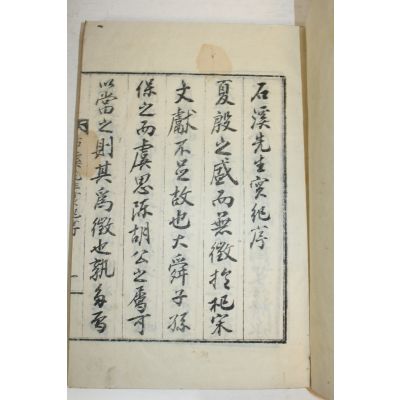 石溪先生实紀序
夏殷之盛而無徵於杞宋
文獻不足故也大舜子孫
保之而虞思陈胡公之屬可
以當之則其爲徵也孰多焉